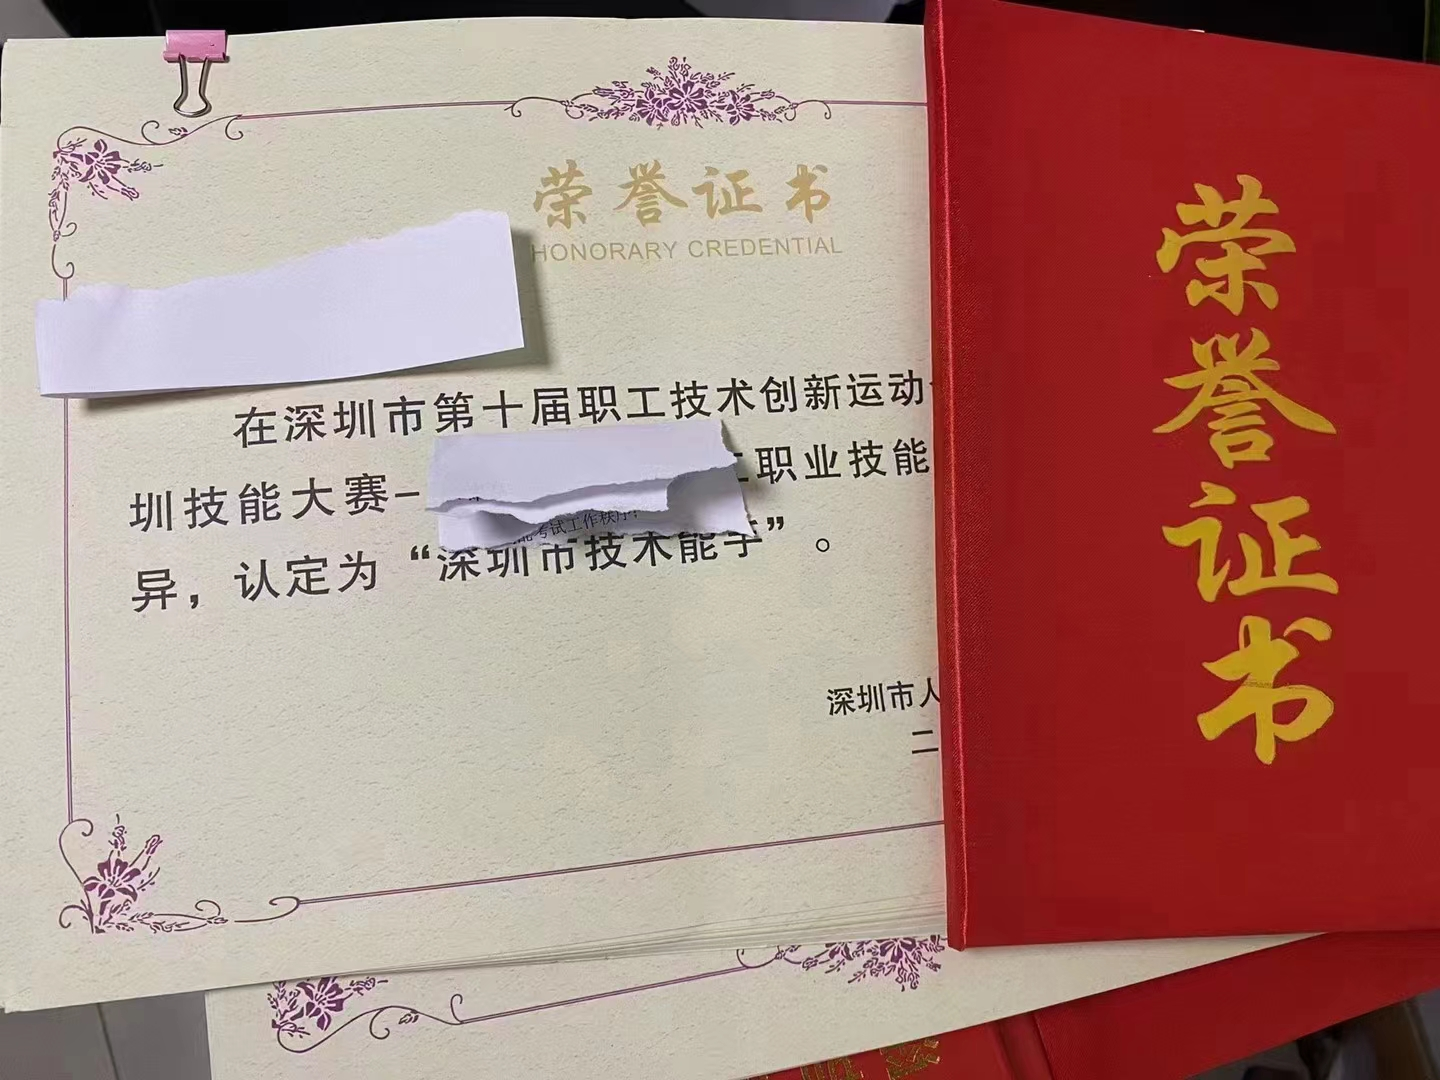 荣誉证书
HONORARY CREDENTIAL
在深圳市第十届职工技术创新运动
圳技能大赛-
职业技能
考试工作秩序
异，认定为“深圳市技术能手”。
深圳市人
二
荣誉证书